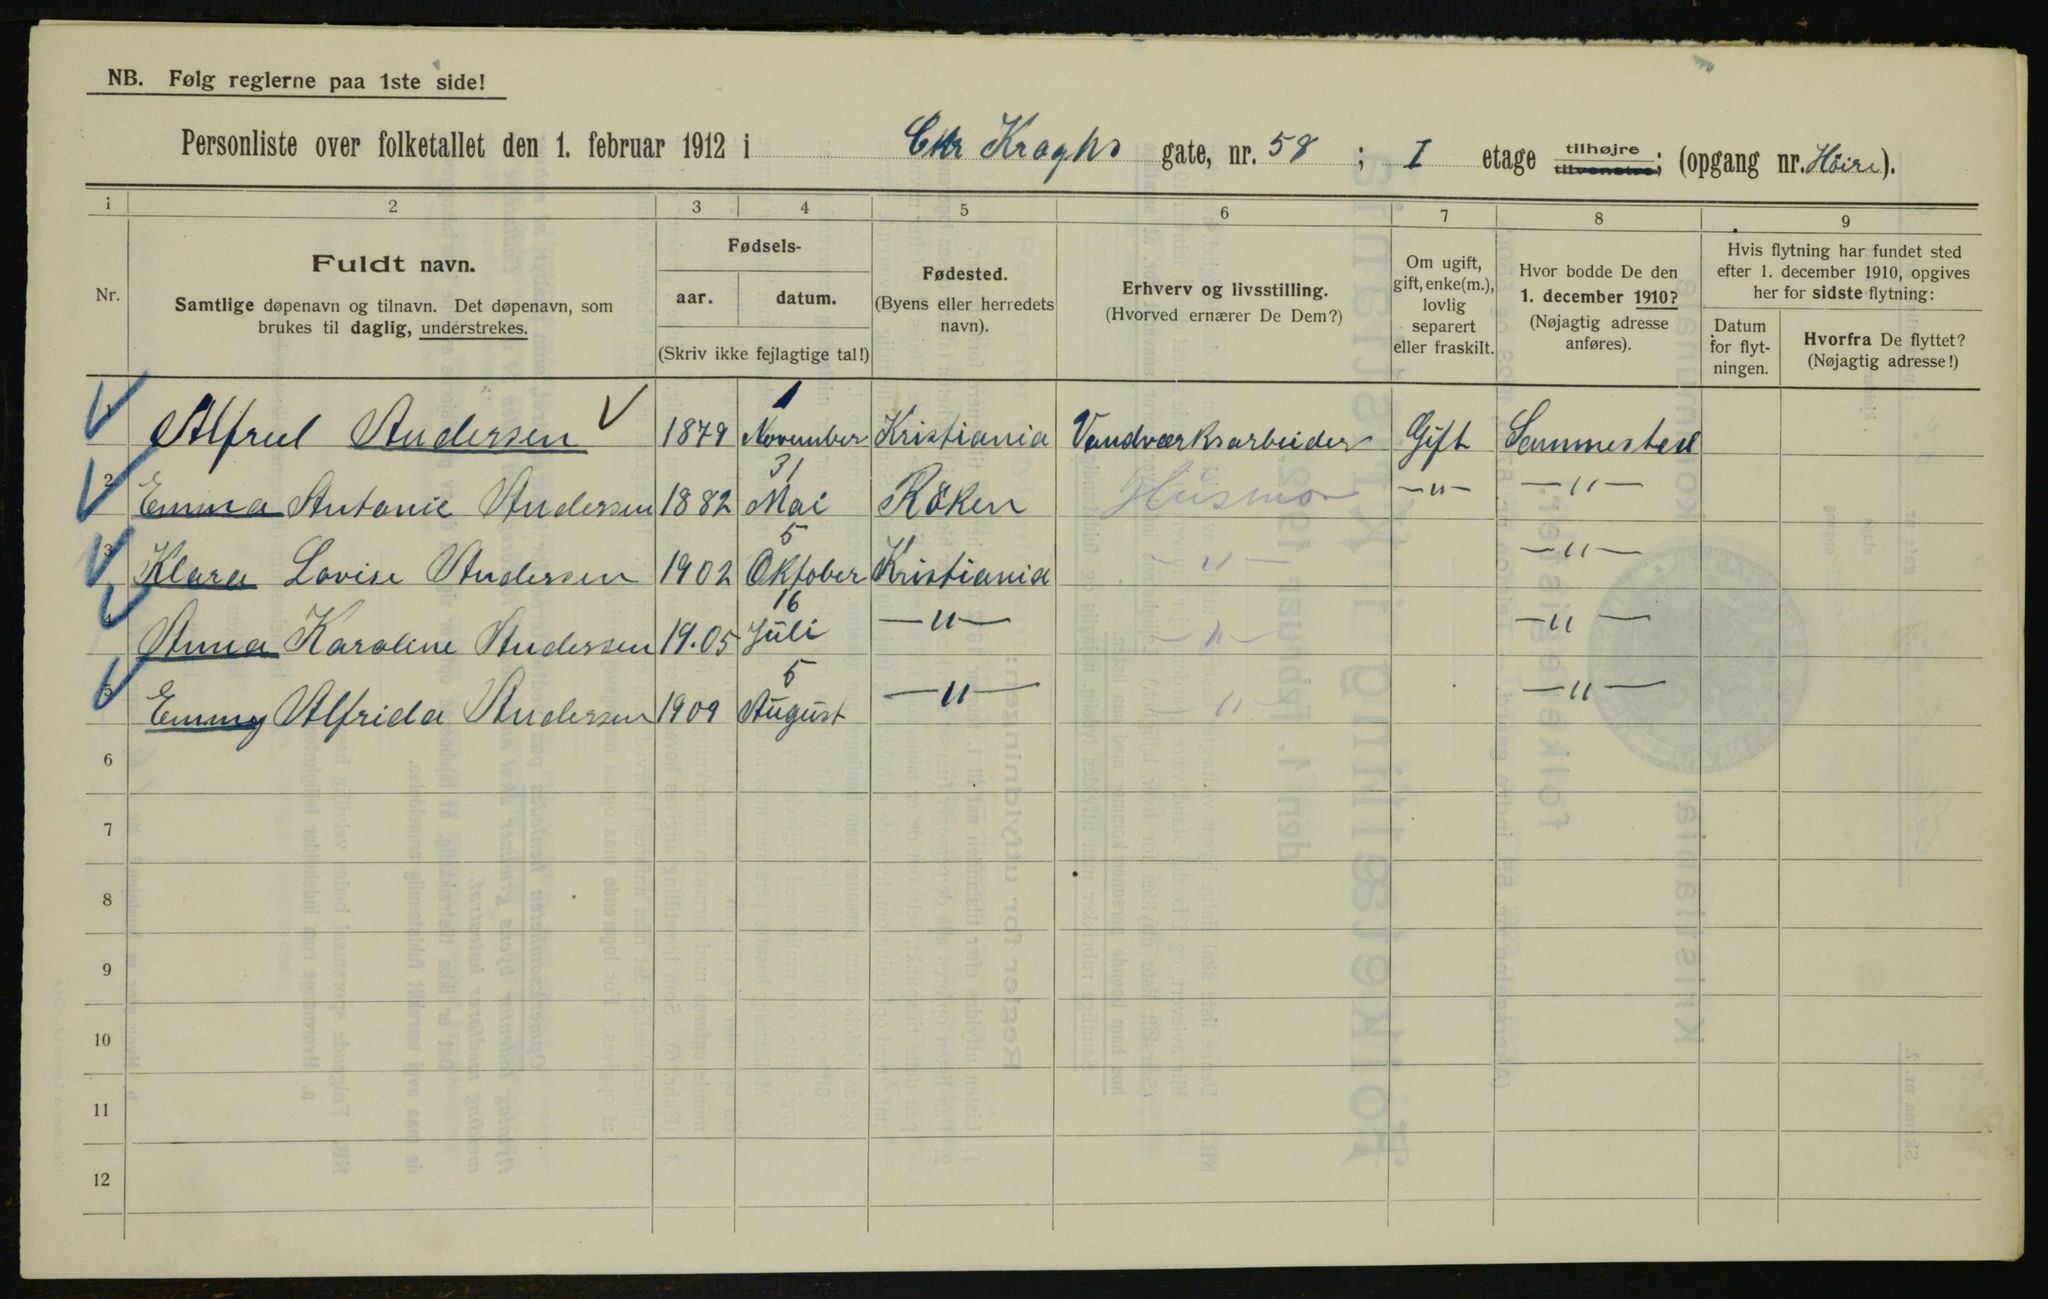 NB. Følg reglerne paa 1ste side!
Personliste over folketallet den 1. februar 1912 i Chr Kroghs gate, nr. 58 ; I etage tilhøjre tilvenstre; (opgang nr. Høire).
1 2 3 4 5 6 7 8 9
Nr.
Fuldt navn.
Samtlige døpenavn og tilnavn. Det døpenavn, som
brukes til daglig, understrekes.
Fødsels-
aar. datum.
(Skriv ikke fejlagtige tal!)
Fødested.
(Byens eller herredets
navn).
Erhverv og livsstilling.
(Hvorved ernærer De Dem?)
Om ugift,
gift, enke(m.),
lovlig
separert
eller fraskilt.
Hvor bodde De den
1. december 1910?
(Nøjagtig adresse
anføres).
Hvis flytning har fundet sted
efter 1. december 1910, opgives
her for sidste flytning:
Datum
for flyt-
ningen.
Hvorfra De flyttet?
(Nøjagtig adresse!)
1 Alfred Andersen 1879 1 November Kristiania Vandværksarbeider Gift Sammested
2 Emma Antonie Andersen 1882 31 Mai Röken Husmor —"— —"—
3 Klara Lovise Andersen 1902 5 Oktober Kristiania —"— —"—
4 Anna Karoline Andersen 19.05 16 Juli —"— —"— —"—
5 Emmy Alfrida Andersen 1909 5 August —"— —"— —"—
6
7
8
9
10
11
12